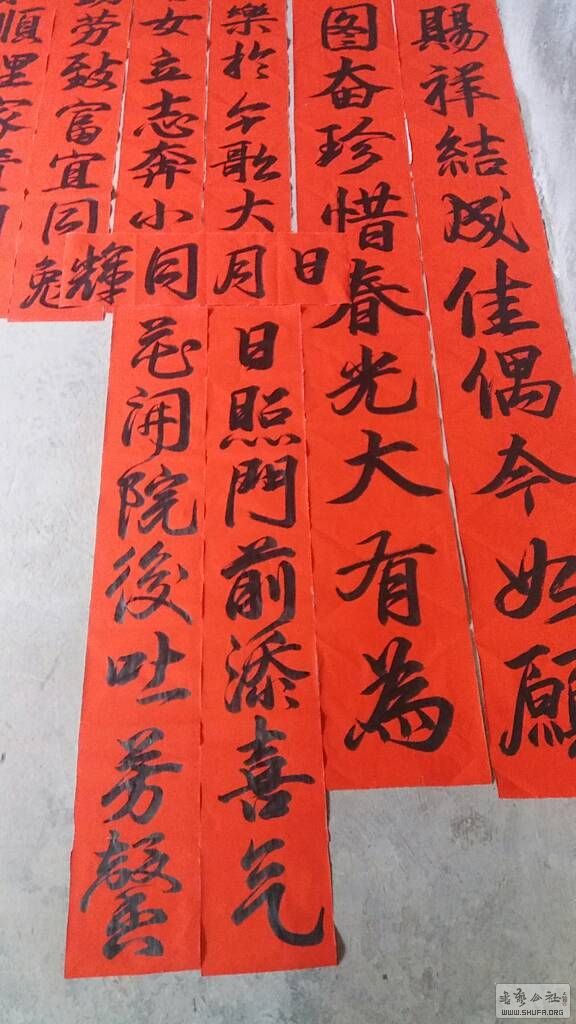 賜祥結成佳偶今如願
图奋珍惜春光大有為
樂於今歌大
女立志奔小
劳致富宜同
順理家
日月同輝
日照門前添喜气
花開院後吐芳馨
WWW.SHUFA.ORG